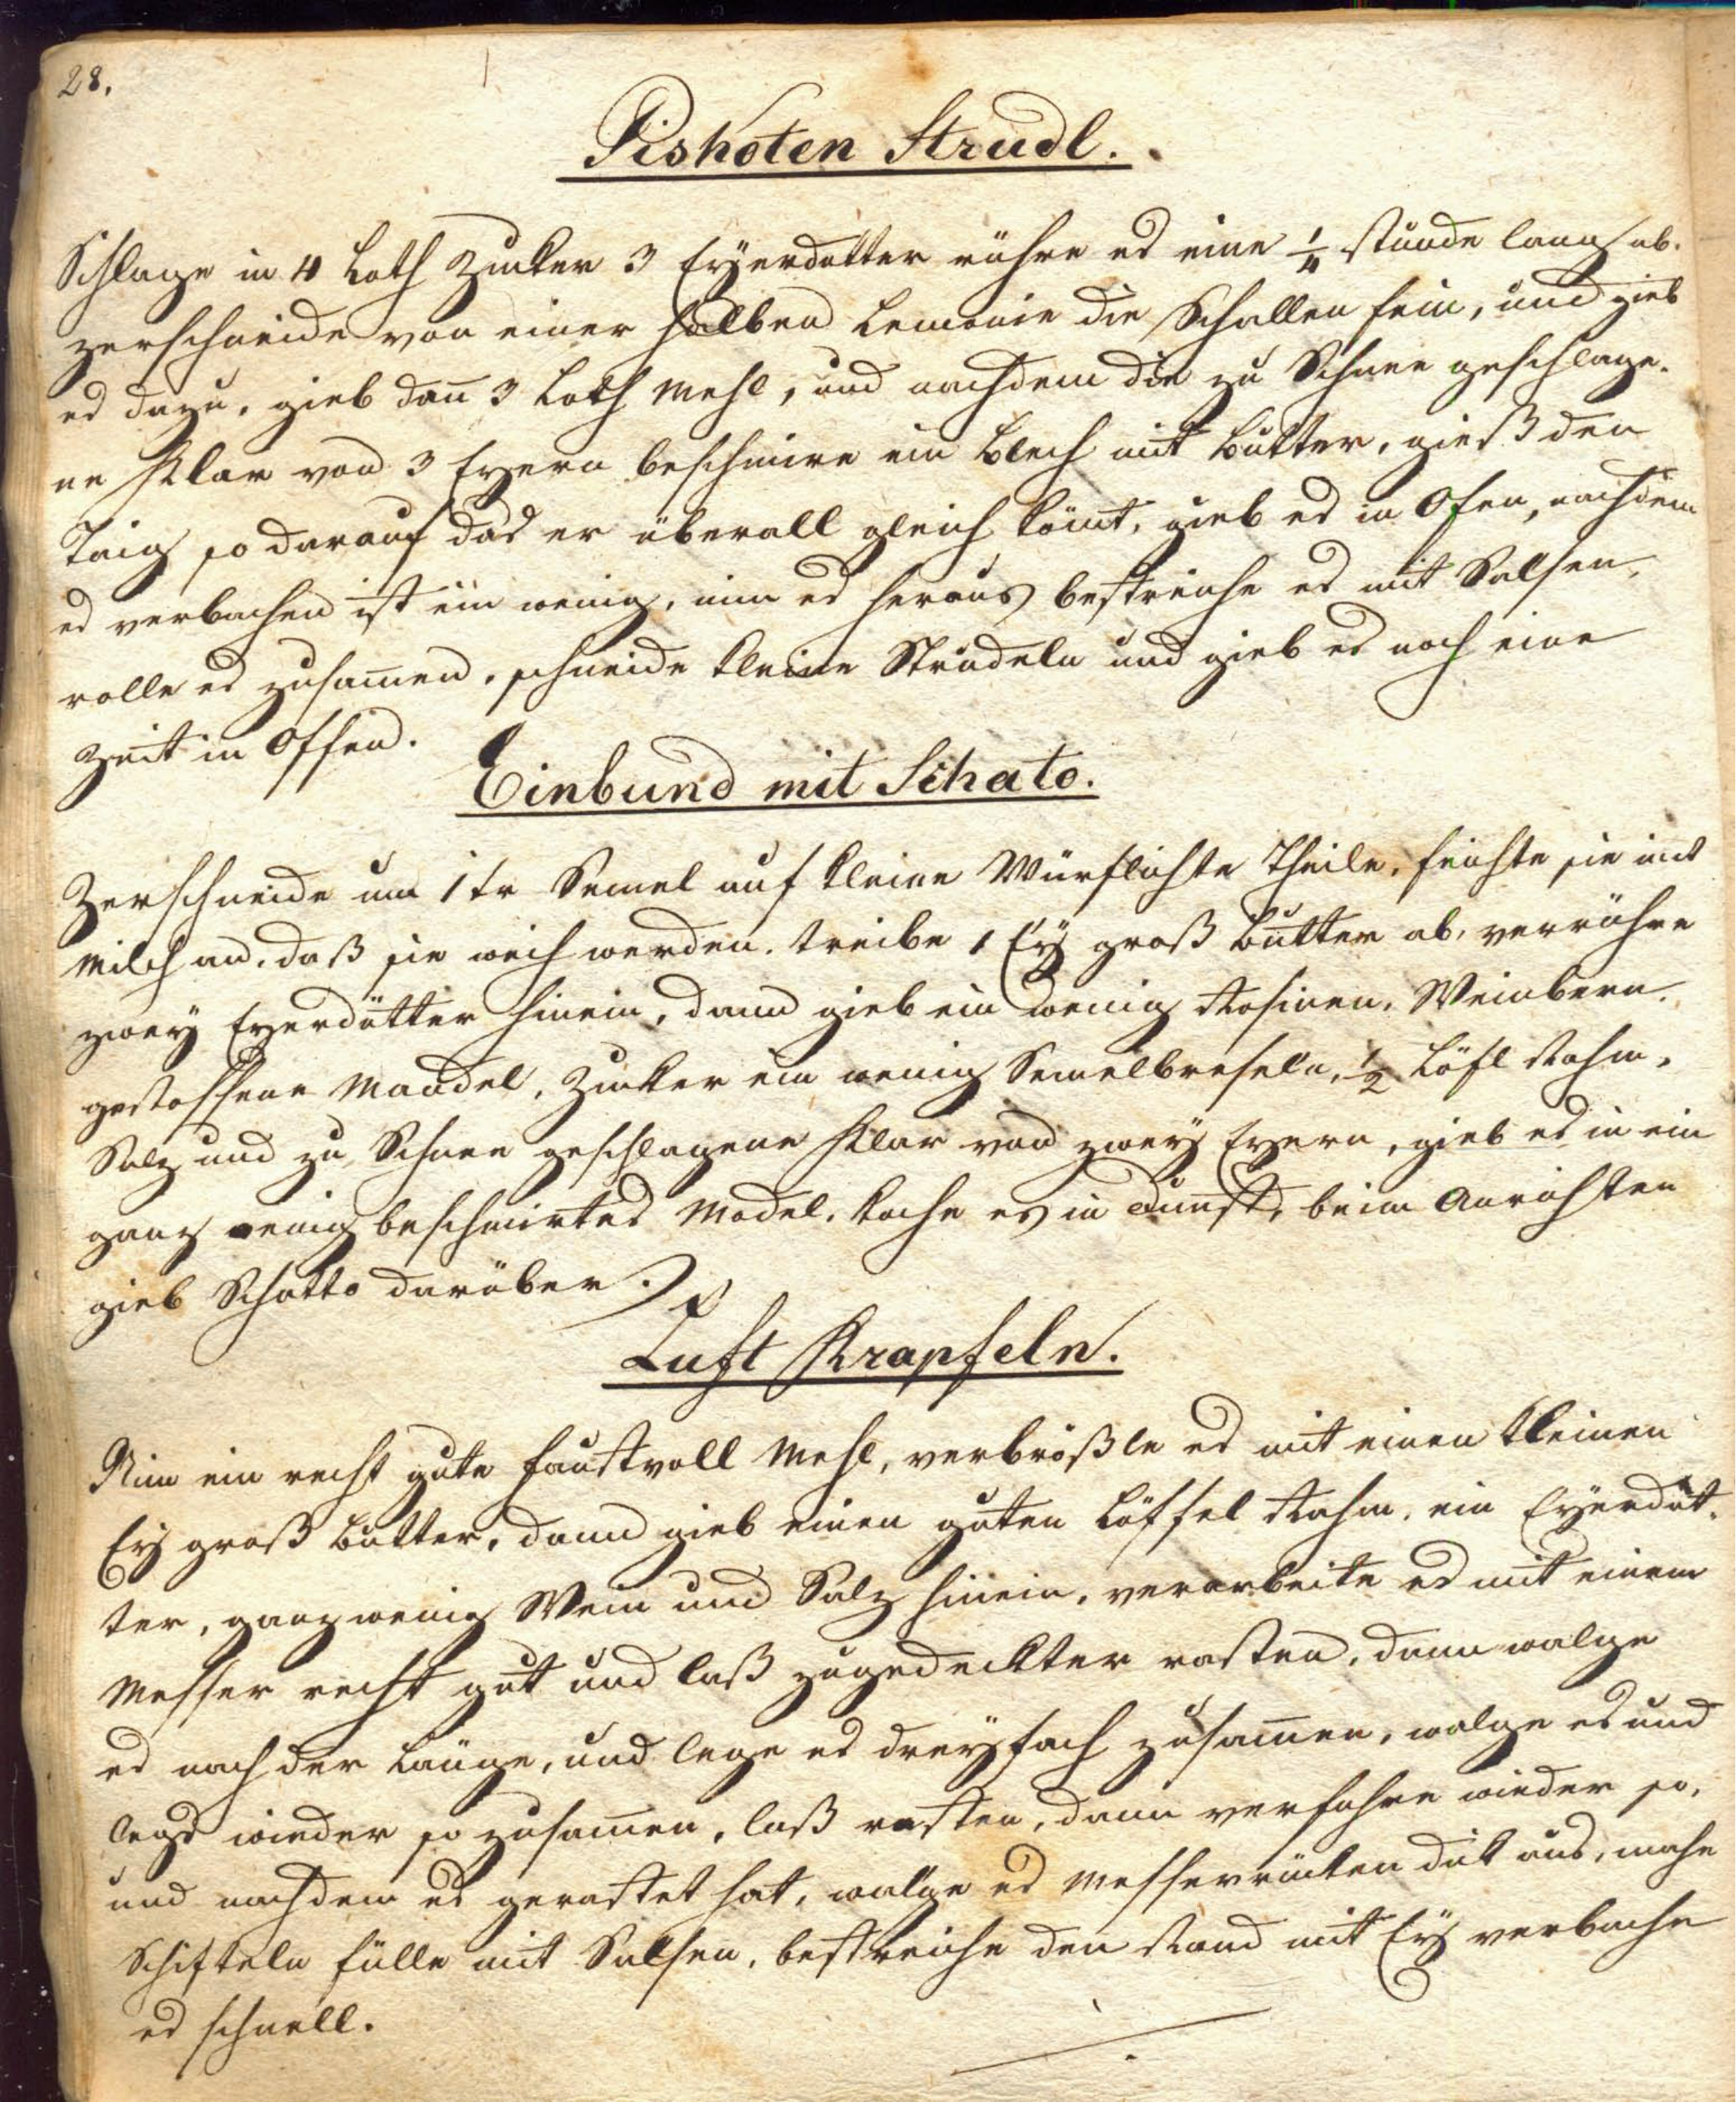 28.
Piskoten Strudl.
Schlage in 4 Loth Zucker 3 Eÿerdotter rühre es eine 1/4 stunde lang ab.
zerschneide von einer halben Lemonie die Schallen fein, und gieb
es dazu, gieb dan̄ 3 Loth Mehl, und nachdem die zu Schnee geschlage-
ne Klar von 3 Eyern beschmire ein Blech mit Butter, gieß den
Taig so darauf das er überall gleich kom̄t, gieb es in Ofen, nachdem
es verbachen ist ein wenig, nim es heraus bestreiche es mit Salsen,
rolle es zusam̄en, schneide kleine Strudeln und gieb es noch eine
Zeit in Offen.
Einbund mit Schato.
Zerschneide um 1 kr Semel auf kleine Würflichte Theile, feichte sie mit
Milch an, daß sie weich werden. treibe 1 Eÿ groß Butter ab, verrühre
zweÿ Eyerdötter hinein, dann gieb ein wenig Rosinen, Weinbern.
gestossene Mandel, Zucker ein wenig Semelbreseln, 1/2 Löfl Rahm,
Salz und zu Schnee geschlagene Klar von zweÿ Eyern, gieb es in ein
ganz wenig beschmirtes Model, koche es in Dunst, beim Anrichten
gieb Schatto darüber.
Luft Krapfeln.
Nim ein recht gute faustvoll Mehl, verbrößle es mit einen kleinen
Eÿ groß Butter, dann gieb einen guten Löffel Rahm, ein Eÿerdot-
ter, ganz wenig Wein und Salz hinein, verarbeite es mit einem
Messer recht gut und laß zugedeckter rasten, dann walge
es nach der Länge, und lege es dreÿfach zusam̄en, walge es und
legs wieder so zusam̄en, laß rasten, dann verfahre wieder so,
und nachdem es gerastet hat, walge es Messerrücken dick aus, mache
Schifteln fülle mit Salsen, bestreiche den Rand mit Eÿ verbache
es schnell.